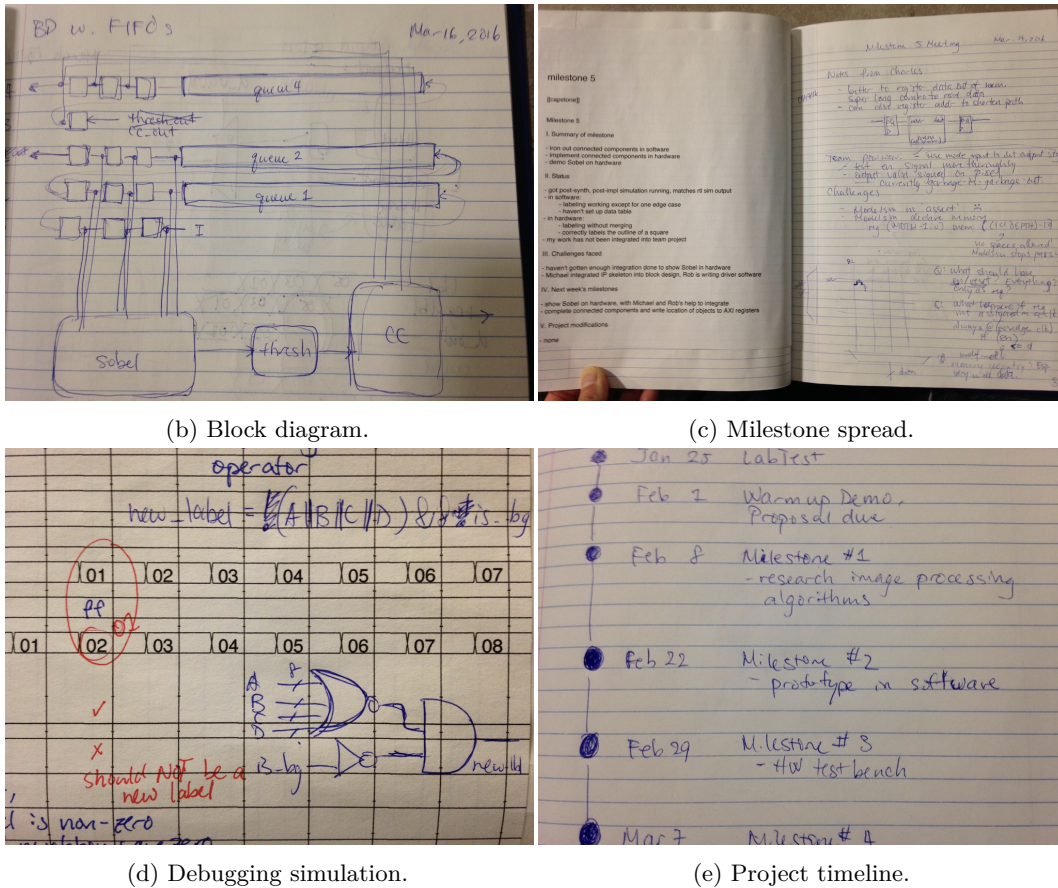 BD w. FIFOs Mar 16, 2016
queue 4
thresh_out
CC_out
out
queue 2
queue 1
I
Sobel
thresh
CC
(b) Block diagram.
milestone 5
[[capstone]]
Milestone 5
I. Summary of milestone
- iron out connected components in software
- implement connected components in hardware
- demo Sobel on hardware
II. Status
- got post-synth, post-impl simulation running, matches rtl sim output
- in software:
- labeling working except for one edge case
- haven't set up data table
- in hardware:
- labeling without merging
- correctly labels the outline of a square
- my work has not been integrated into team project
III. Challenges faced
- haven't gotten enough integration done to show Sobel in hardware
- Michael integrated IP skeleton into block design, Rob is writing driver software
IV. Next week's milestones
- show Sobel on hardware, with Michael and Rob's help to integrate
- complete connected components and write location of objects to AXI registers
V. Project modifications
- none
Milestone 5 Meeting
Notes from Charles
- better to register data out of mem.
super long to read data
- can also register addr to shorten path
Team
- test en signal more thoroughly
- output valid signal
Challenges
- Modelsim "assert"
- Modelsim declare memory
no spaces allowed!
Q: What should have
everything?
always @(posedge clk)
if (en)
(c) Milestone spread.
operator
new_label = !(A||B||C||D) && !is_bg
01 02 03 04 05 06 07
PP
01
01 02 03 04 05 06 07 08
A 8
B
C
D
is_bg
new_lbl
✓
✗
should NOT be a
new label
is non-zero
(d) Debugging simulation.
Jan 25 LabTest
Feb 1 Warm up Demo,
Proposal due
Feb 8 Milestone #1
- research image processing
algorithms
Feb 22 Milestone #2
- prototype in software
Feb 29 Milestone #3
- HW test bench
Mar 7 Milestone #4
(e) Project timeline.